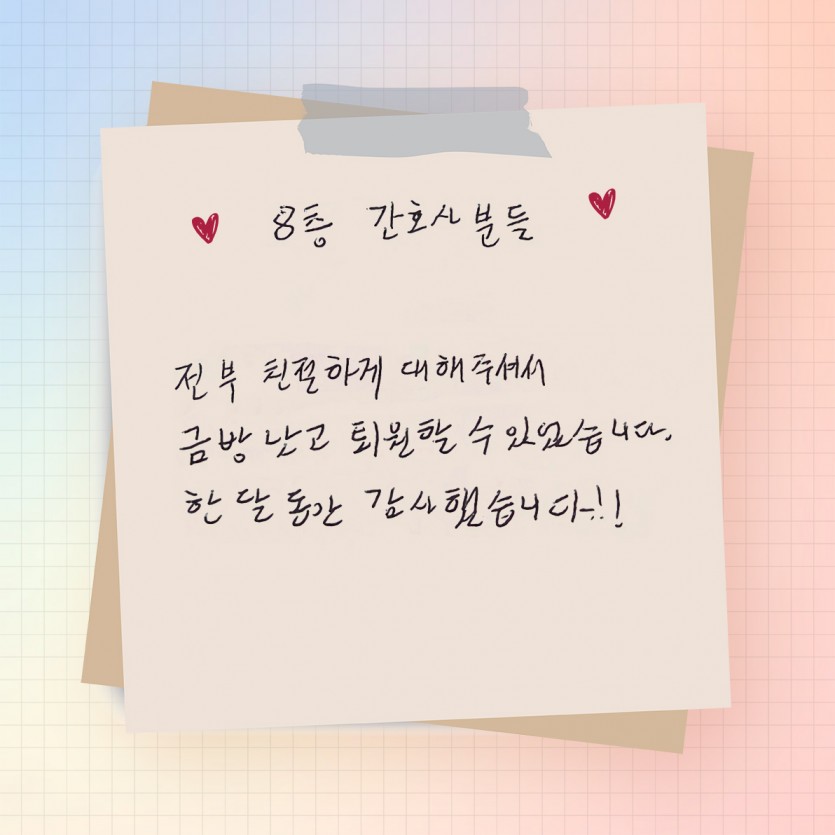 8층 간호사분들
전부 친절하게 대해주셔서
금방 낫고 퇴원할 수 있었습니다.
한 달 동안 감사했습니다!!